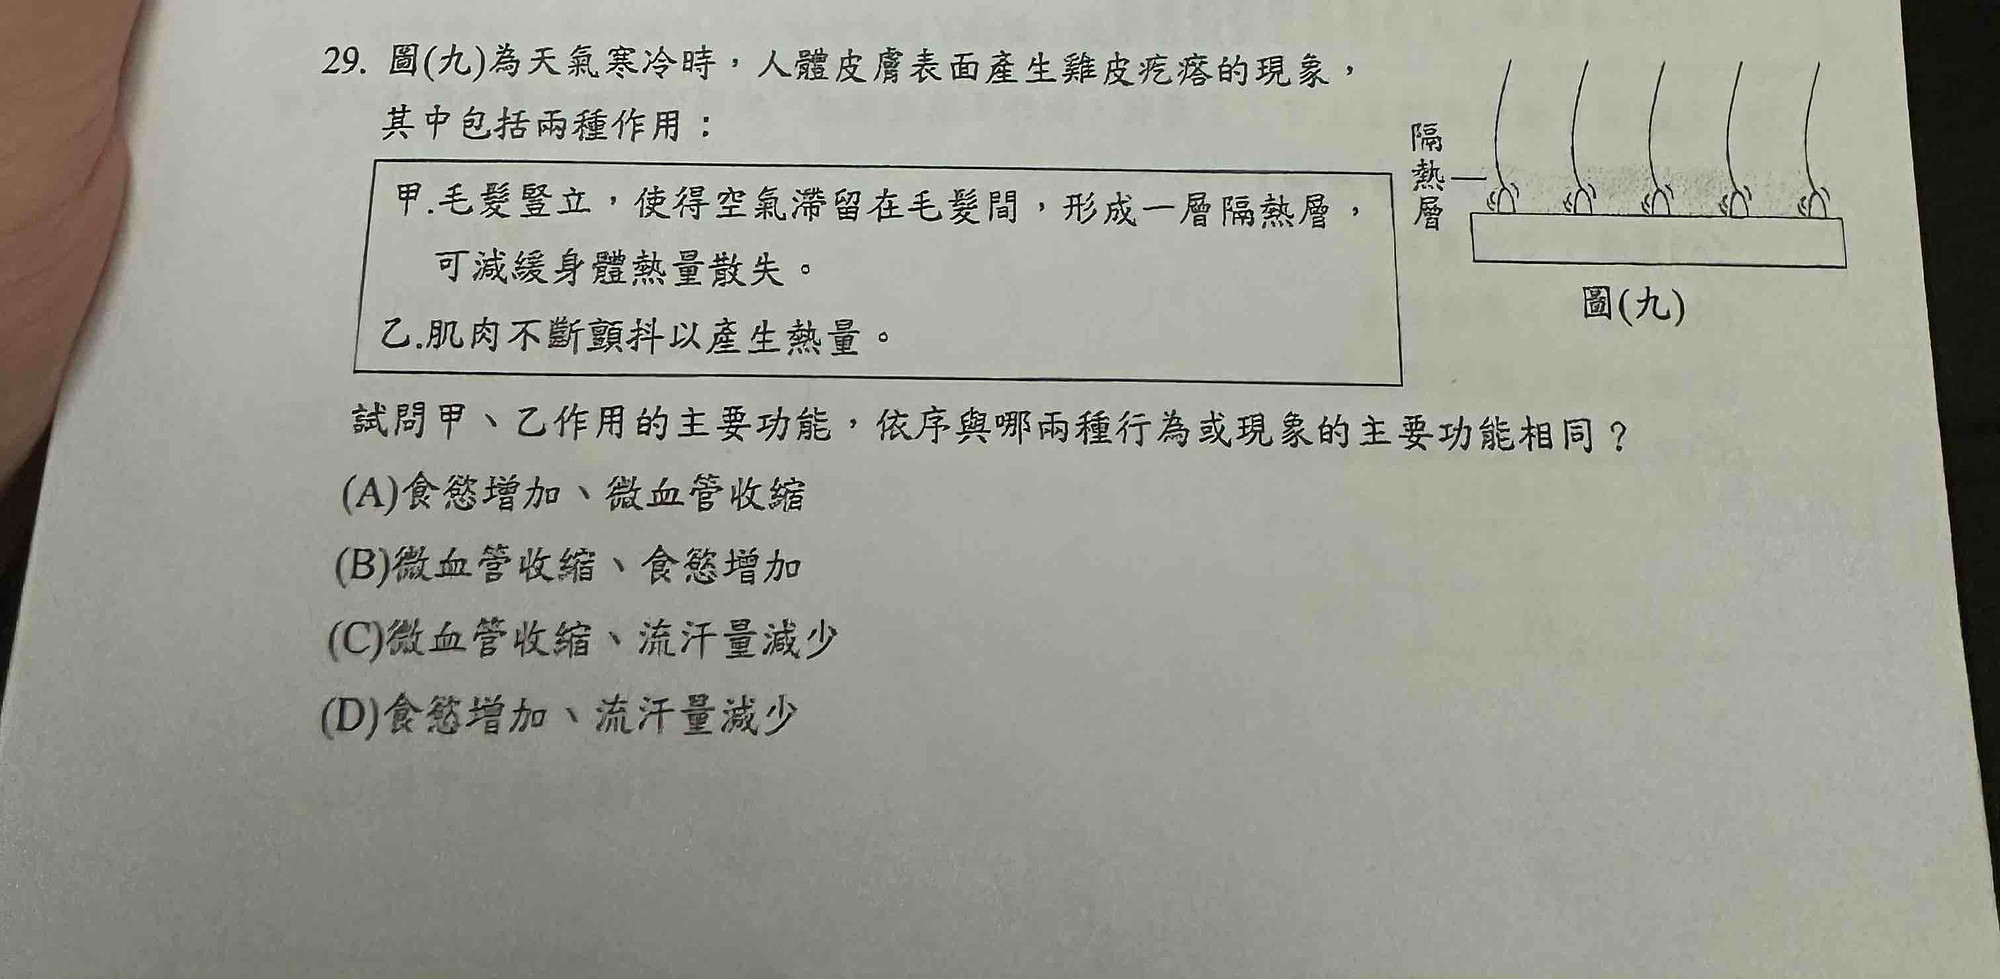 29. 圖(九)為天氣寒冷時，人體皮膚表面產生雞皮疙瘩的現象，
其中包括兩種作用：
甲.毛髮豎立，使得空氣滯留在毛髮間，形成一層隔熱層，
可減緩身體熱量散失。
乙.肌肉不斷顫抖以產生熱量。
隔熱層
圖(九)
試問甲、乙作用的主要功能，依序與哪兩種行為或現象的主要功能相同？
(A)食慾增加、微血管收縮
(B)微血管收縮、食慾增加
(C)微血管收縮、流汗量減少
(D)食慾增加、流汗量減少